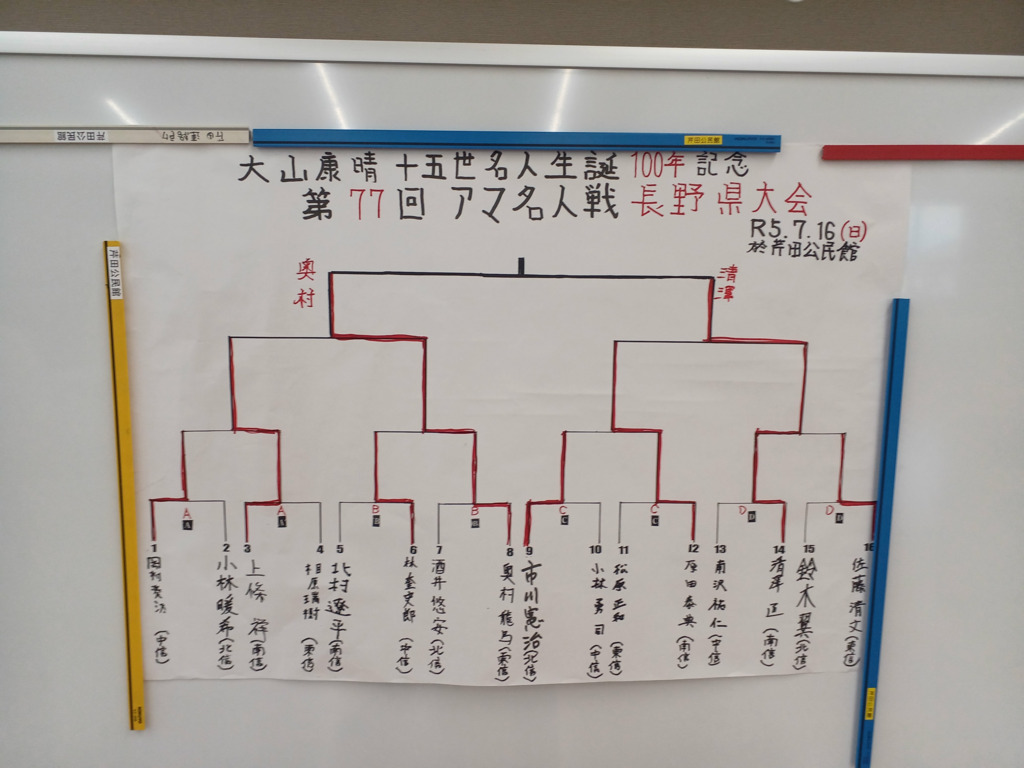 芹田公民館
芹田公民館
大山康晴十五世名人生誕100年記念
第77回 アマ名人戦 長野県大会
R5.7.16(日)
於芹田公民館
芹田公民館
奥村
清澤
A A B B C C D D
A A B B C C D D
1 2 3 4 5 6 7 8 9 10 11 12 13 14 15 16
(中信)
小林暖希(北信)
上條 (南信)
相原瑞樹(東信)
北村遼平(南信)
林奎史郎(中信)
酒井悠安(北信)
奥村龍馬(東信)
市川憲治(北信)
小林勇司(中信)
松原正和(東信)
座田泰央(南信)
南沢祐仁(中信)
清澤正(南信)
鈴木翼(北信)
佐藤清文(東信)